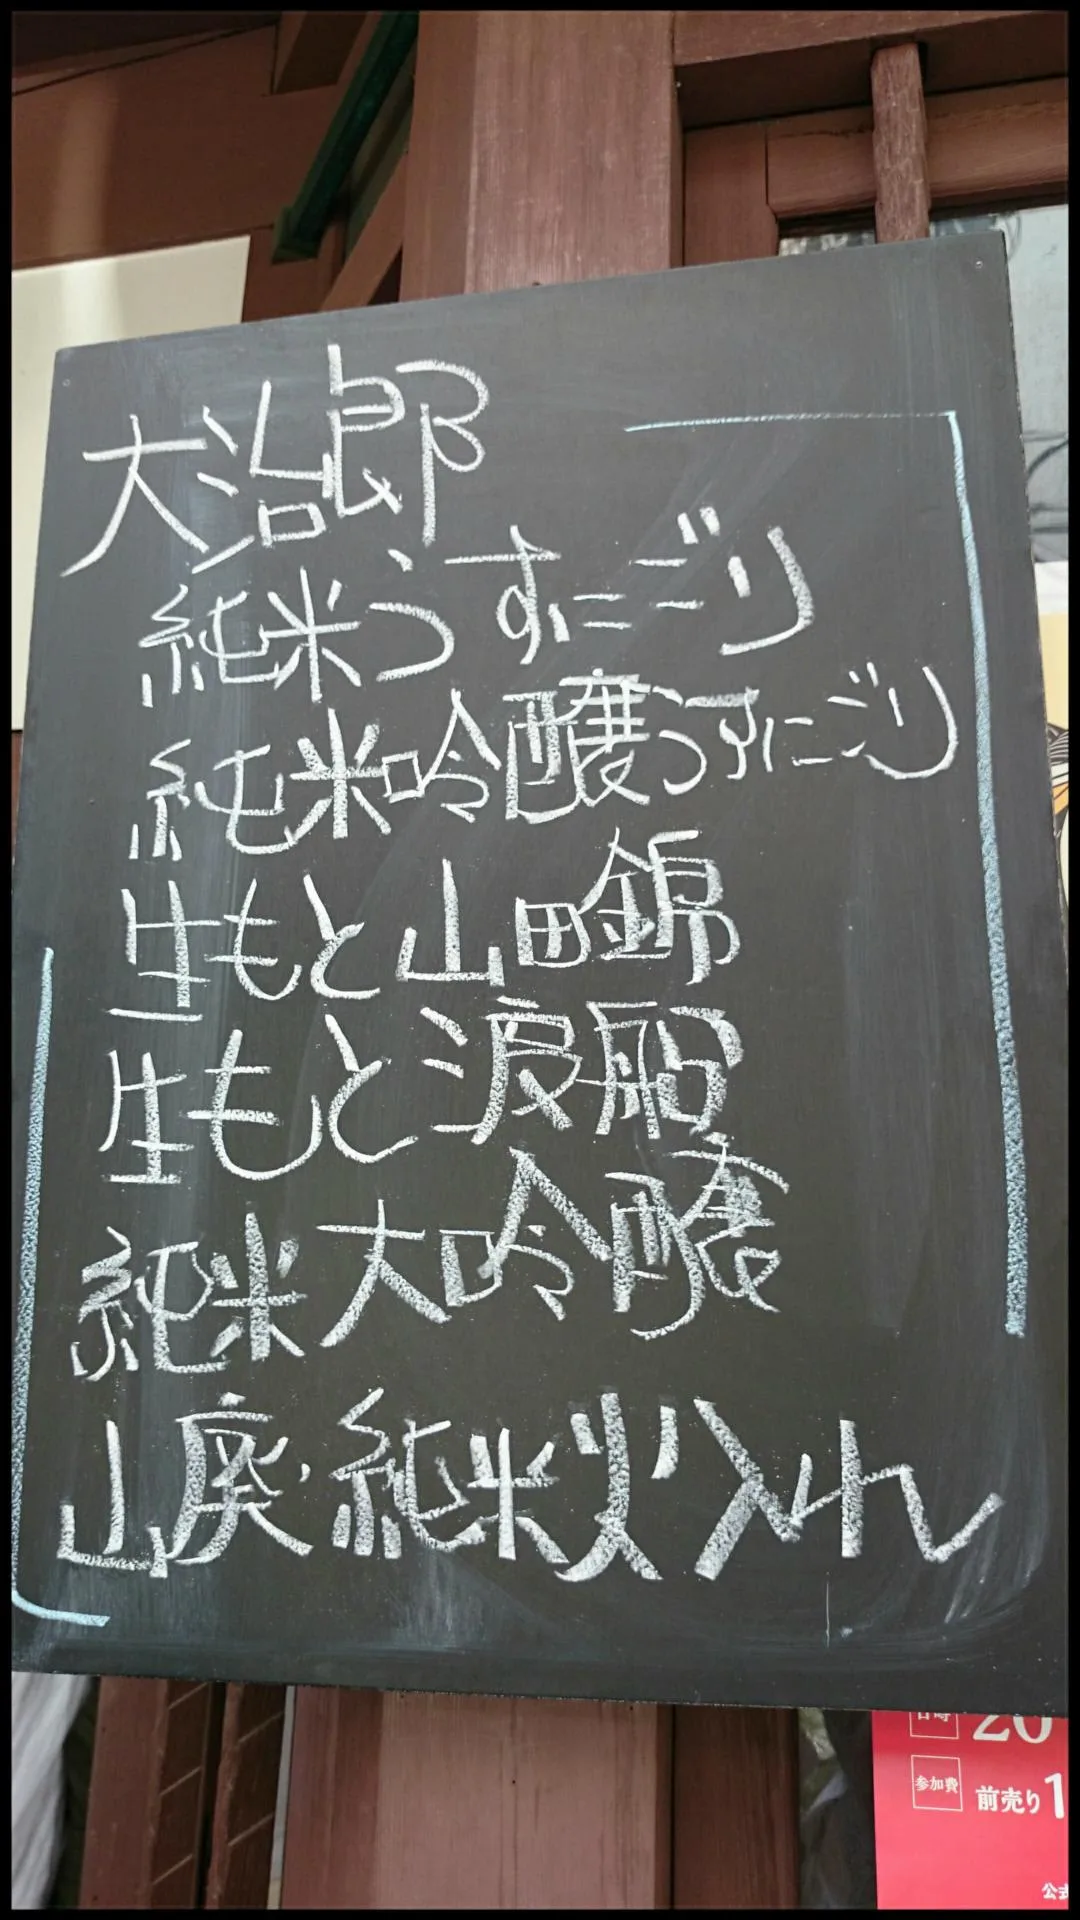 大治郎
純米うすにごり
純米吟醸うすにごり
生もと山田錦
生もと渡船
純米大吟醸
山廃・純米火入れ
日時 20
参加費 前売り1
公式